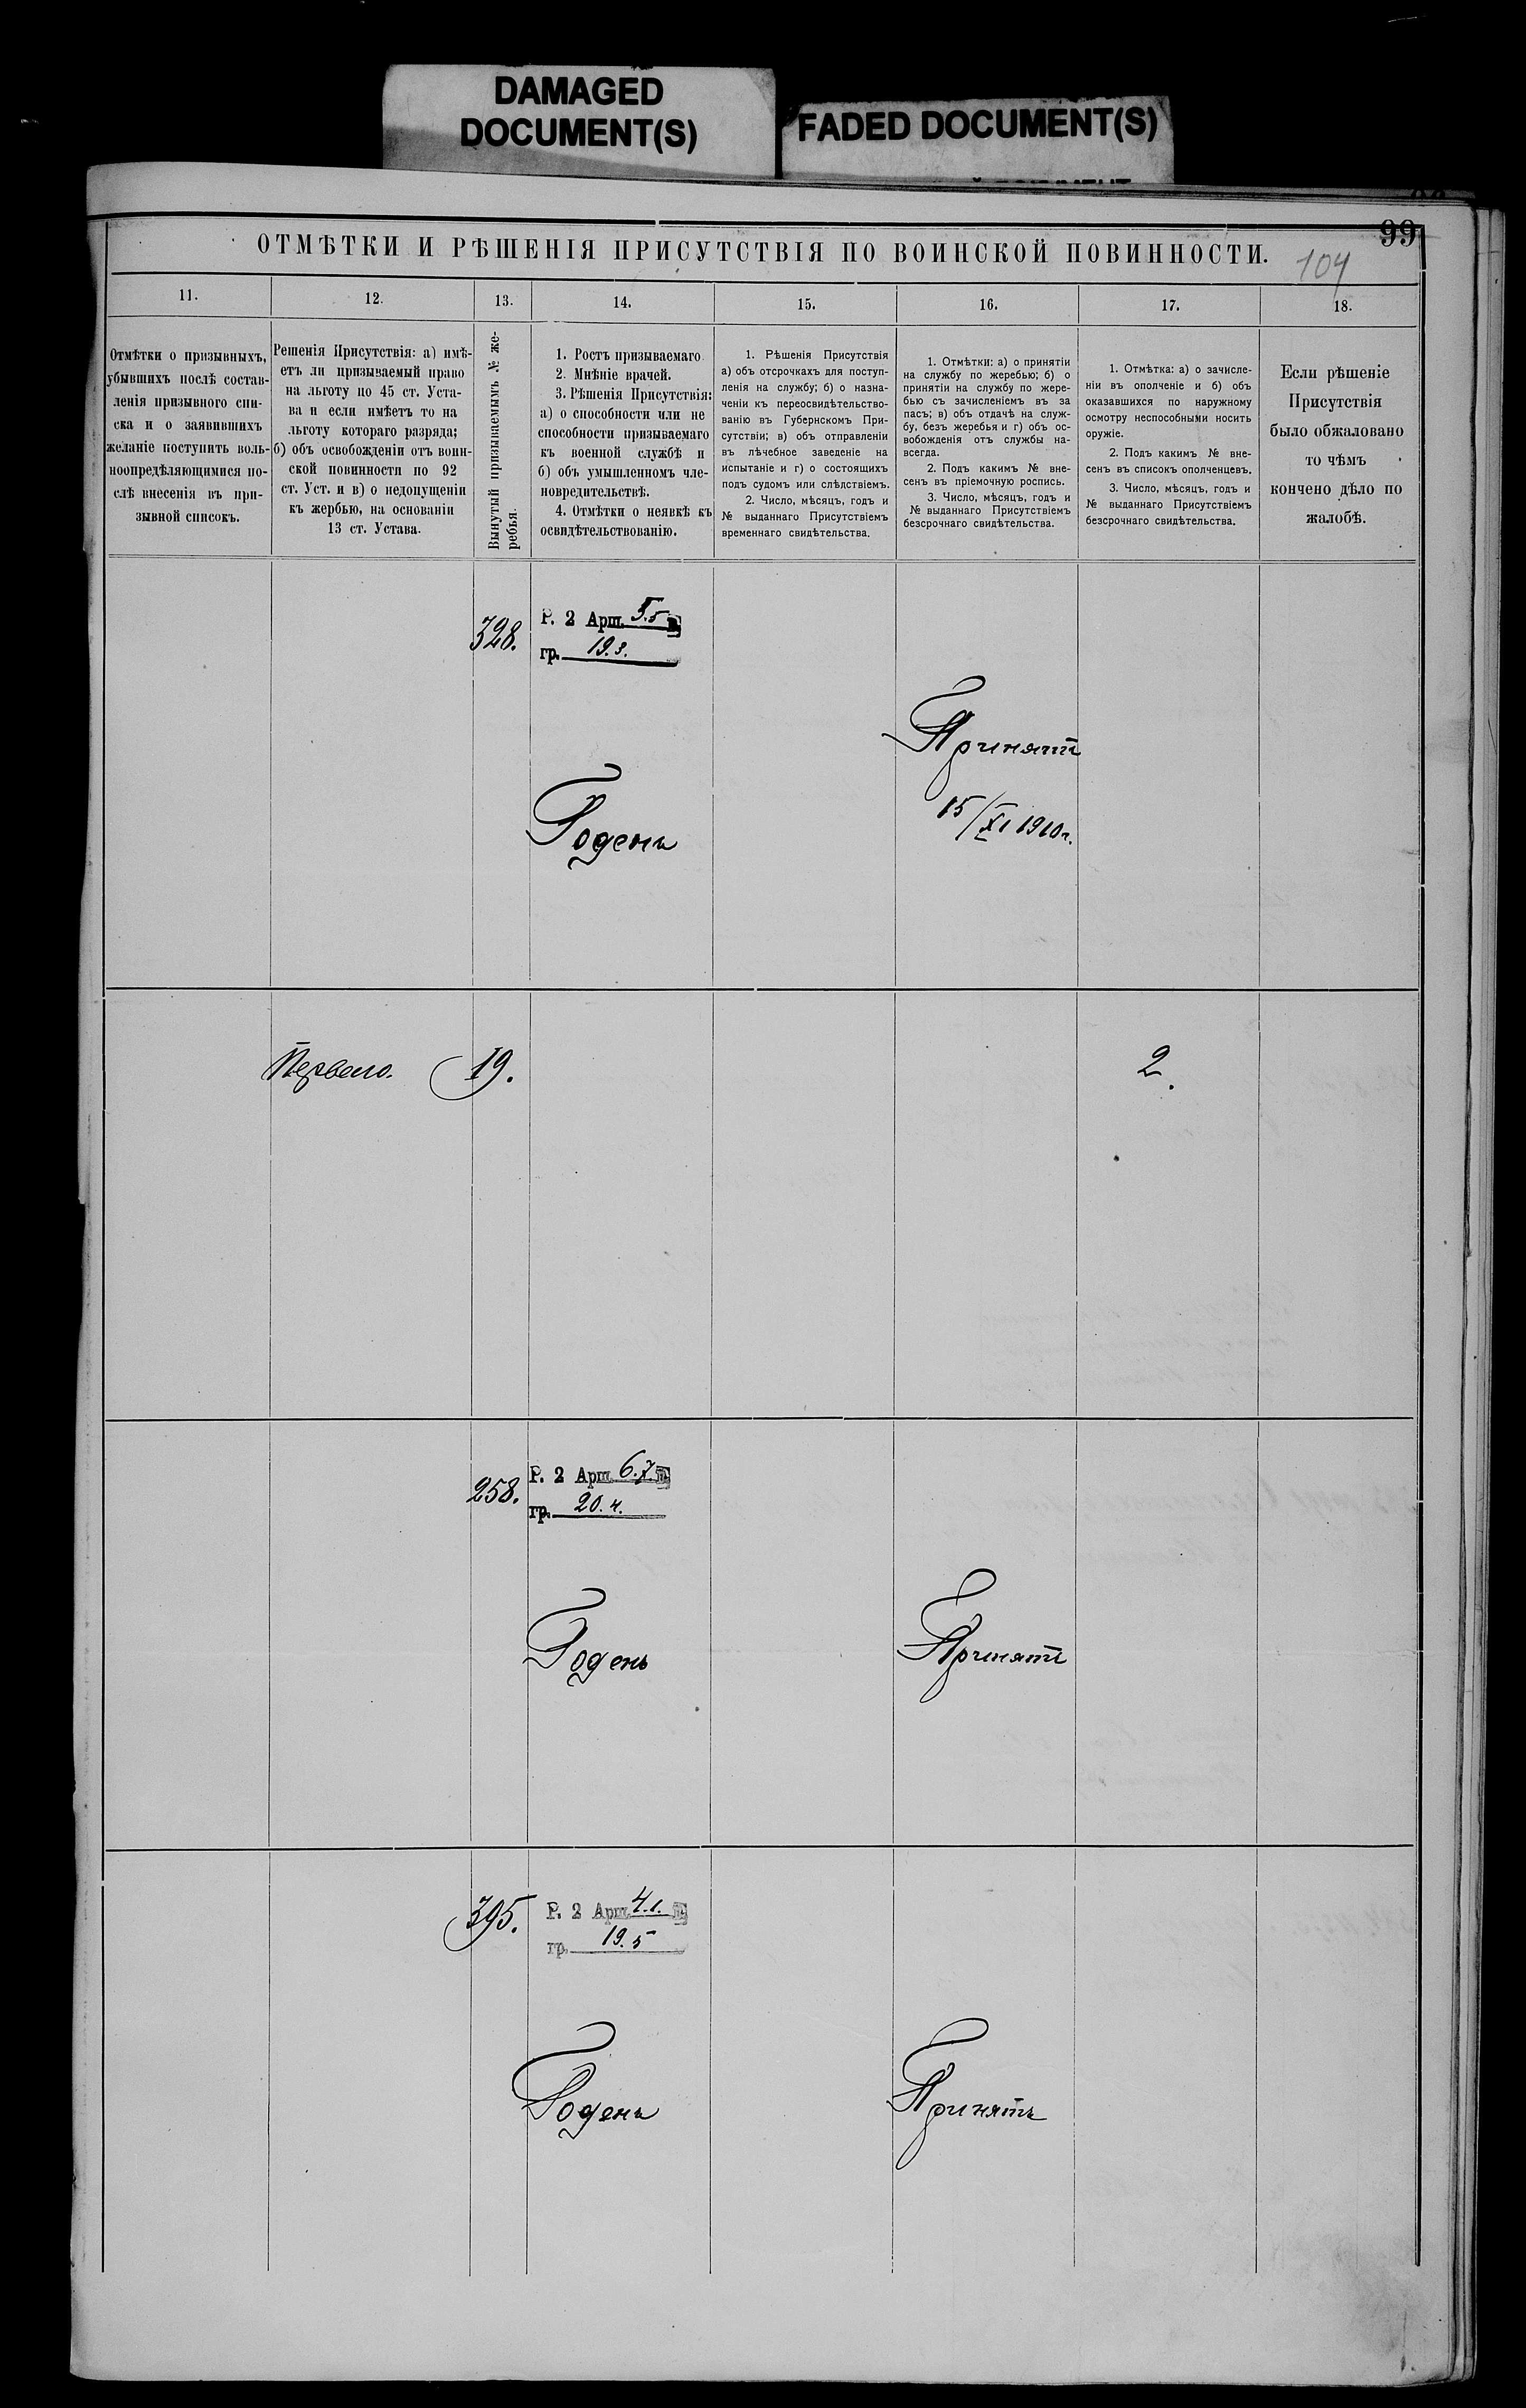 DAMAGED
DOCUMENT(S)
FADED DOCUMENT(S)
99
ОТМѢТКИ И РѢШЕНІЯ ПРИСУТСТВІЯ ПО ВОИНСКОЙ ПОВИННОСТИ.
104
11.
12.
13.
14.
15.
16.
17.
18.
Отмѣтки о призывныхъ,
убывшихъ послѣ состав-
ленія призывного спи-
ска и о заявившихъ
желаніе поступить воль-
ноопредѣляющимися по-
слѣ внесенія въ при-
зывной списокъ.
Решенія Присутствія: а) имѣ-
етъ ли призываемый право
на льготу по 45 ст. Уста-
ва и если имѣетъ то на
льготу котораго разряда;
б) объ освобожденіи отъ воин-
ской повинности по 92
ст. Уст. и в) о недопущеніи
къ жербью, на основаніи
13 ст. Устава.
Вынутый призываемымъ № же-
ребья.
1. Ростъ призываемаго
2. Мнѣніе врачей.
3. Рѣшенія Присутствія:
а) о способности или не
способности призываемаго
къ военной службѣ и
б) объ умышленномъ чле-
новредительствѣ.
4. Отмѣтки о неявкѣ къ
освидѣтельствованію.
1. Рѣшенія Присутствія
а) объ отсрочкахъ для поступ-
ленія на службу; б) о назна-
ченіи къ переосвидѣтельство-
ванію въ Губернскомъ При-
сутствіи; в) объ отправленіи
въ лѣчебное заведеніе на
испытаніе и г) о состоящихъ
подъ судомъ или слѣдствіемъ.
2. Число, мѣсяцъ, годъ и
№ выданнаго Присутствіемъ
временнаго свидѣтельства.
1. Отмѣтки: а) о принятіи
на службу по жеребью; б) о
принятіи на службу по жере-
бью съ зачисленіемъ въ за
пасъ; в) объ отдачѣ на служ-
бу, безъ жеребья и г) объ ос-
вобожденія отъ службы на-
всегда.
2. Подъ какимъ № вне-
сенъ въ пріемочную роспись.
3. Число, мѣсяцъ, годъ и
№ выданнаго Присутствіемъ
безсрочнаго свидѣтельства.
1. Отмѣтка: а) о зачисле-
ніи въ ополченіе и б) объ
оказавшихся по наружному
осмотру неспособными носить
оружіе.
2. Подъ какимъ № вне-
сенъ въ списокъ ополченцевъ.
3. Число, мѣсяцъ, годъ и
№ выданнаго Присутствіемъ
безсрочнаго свидѣтельства.
Если рѣшеніе
Присутствія
было обжаловано
то чѣмъ
кончено дѣло по
жалобѣ.
328.
Р. 2 Арш. 5.5 в.
гр. 19.3.
Годенъ
Принятъ
15/XI 1910 г.
Перваго.
19.
2.
258.
Р. 2 Арш. 6.7. в.
гр. 20.4.
Годенъ
Принятъ
395.
Р. 2 Арш. 4.1. в.
гр. 19.5
Годенъ
Принятъ